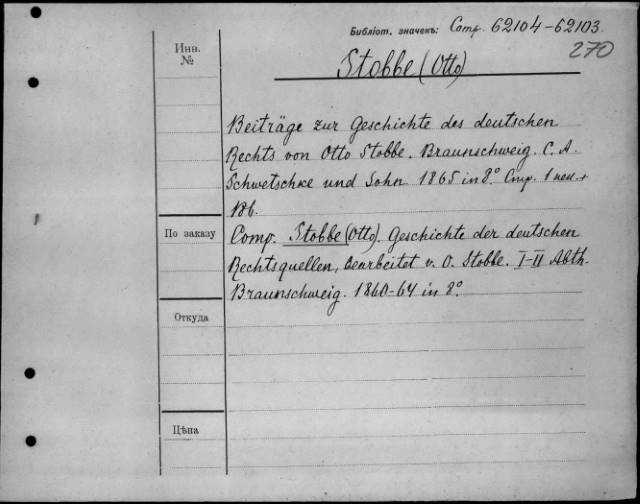 Библіот. значекъ: Comp. 62104-62103.
270
Инв.
№
Stobbe (Otto)
Beiträge zur Geschichte des deutschen
Rechts von Otto Stobbe. Braunschweig. C. A.
Schwetschke und Sohn 1865 in 8° Стр. 1 нен. +
186.
По заказу
Comp. Stobbe (Otto). Geschichte der deutschen
Rechtsquellen, bearbeitet v. O. Stobbe. I-II Abth.
Braunschweig. 1860-64 in 8°
Откуда
Цѣна